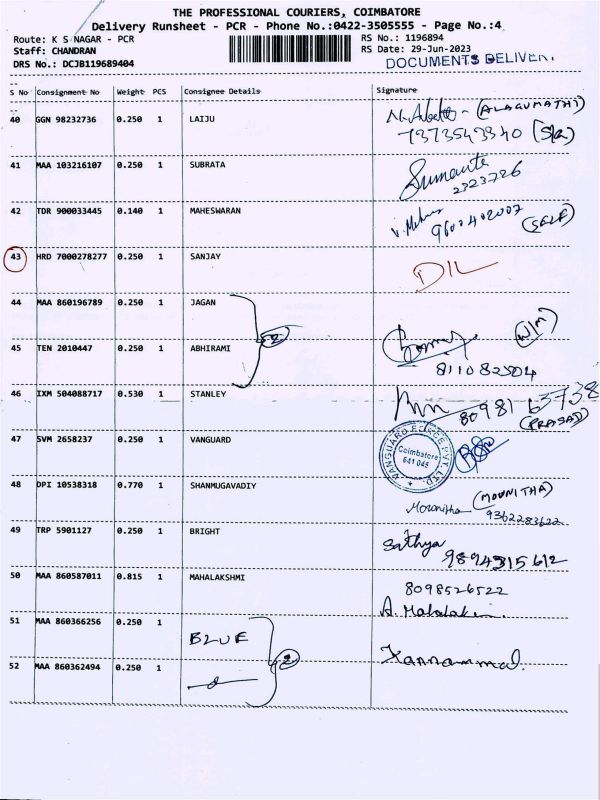 THE PROFESSIONAL COURIERS, COIMBATORE
Delivery Runsheet - PCR - Phone No.:0422-3505555 - Page No.:4
Route: K S NAGAR - PCR RS No.: 1196894
Staff: CHANDRAN RS Date: 29-Jun-2023
DRS No.: DCJB119689404 DOCUMENTS DELIVER.
S No Consignment No Weight PCS Consignee Details Signature
40 GGN 98232736 0.250 1 LAIJU (ALAGUMATHI)
7373549340
41 MAA 103216107 0.250 1 SUBRATA Sumanta
2323726
42 TDR 900033445 0.140 1 MAHESWARAN (SELF)
9600402007
43 HRD 7000278277 0.250 1 SANJAY D/L
44 MAA 860196789 0.250 1 JAGAN 2 (W/M)
45 TEN 2010447 0.250 1 ABHIRAMI
46 IXM 504088717 0.530 1 STANLEY 80981 63738
(PRASAD)
47 SVM 2658237 0.250 1 VANGUARD VANGUARD FORCE PVT. LTD. Coimbatore 641 045
48 DPI 10538318 0.770 1 SHANMUGAVADIY Mounitha (MOUNITHA)
9362283622
49 TRP 5901127 0.250 1 BRIGHT Sathya
9894315612
50 MAA 860587011 0.815 1 MAHALAKSHMI 8098526522
51 MAA 860366256 0.250 1 BLUE
52 MAA 860362494 0.250 1 2 Kannammal